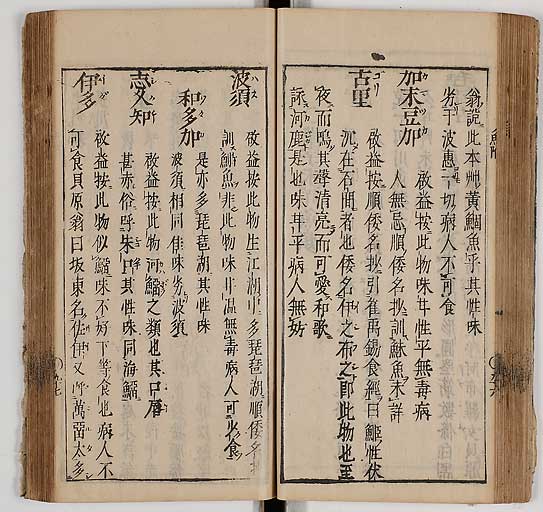 翁説此本州黄鯝魚乎其性味
劣于波惠一切病人不可食
加末豆加
啟益按此物味甘性平無毒病
人無忌順倭名抄訓鯄魚未詳
古里
啟益按順倭名抄引崔禹錫食經曰䱌性伏
沉在石間者也倭名伊之布之即此物也至
夜而鳴其聲清亮而可愛和歌
詠河鹿是也味甘平病人無妨
波須
啟益按此物生江湖中多琵琶湖順倭名抄
訓魚非此物味甘温無毒病人可少食
和多加
是亦多琵琶湖其性味
波須相同但味劣波須
志久知
啟益按此物河鯔之類也其口唇
甚赤俗呼朱口其性味同海鯔
伊多
啟益按此物似鯔味不好下等食也病人不
可食貝原翁曰坂東名佐伊又呼萬留太多